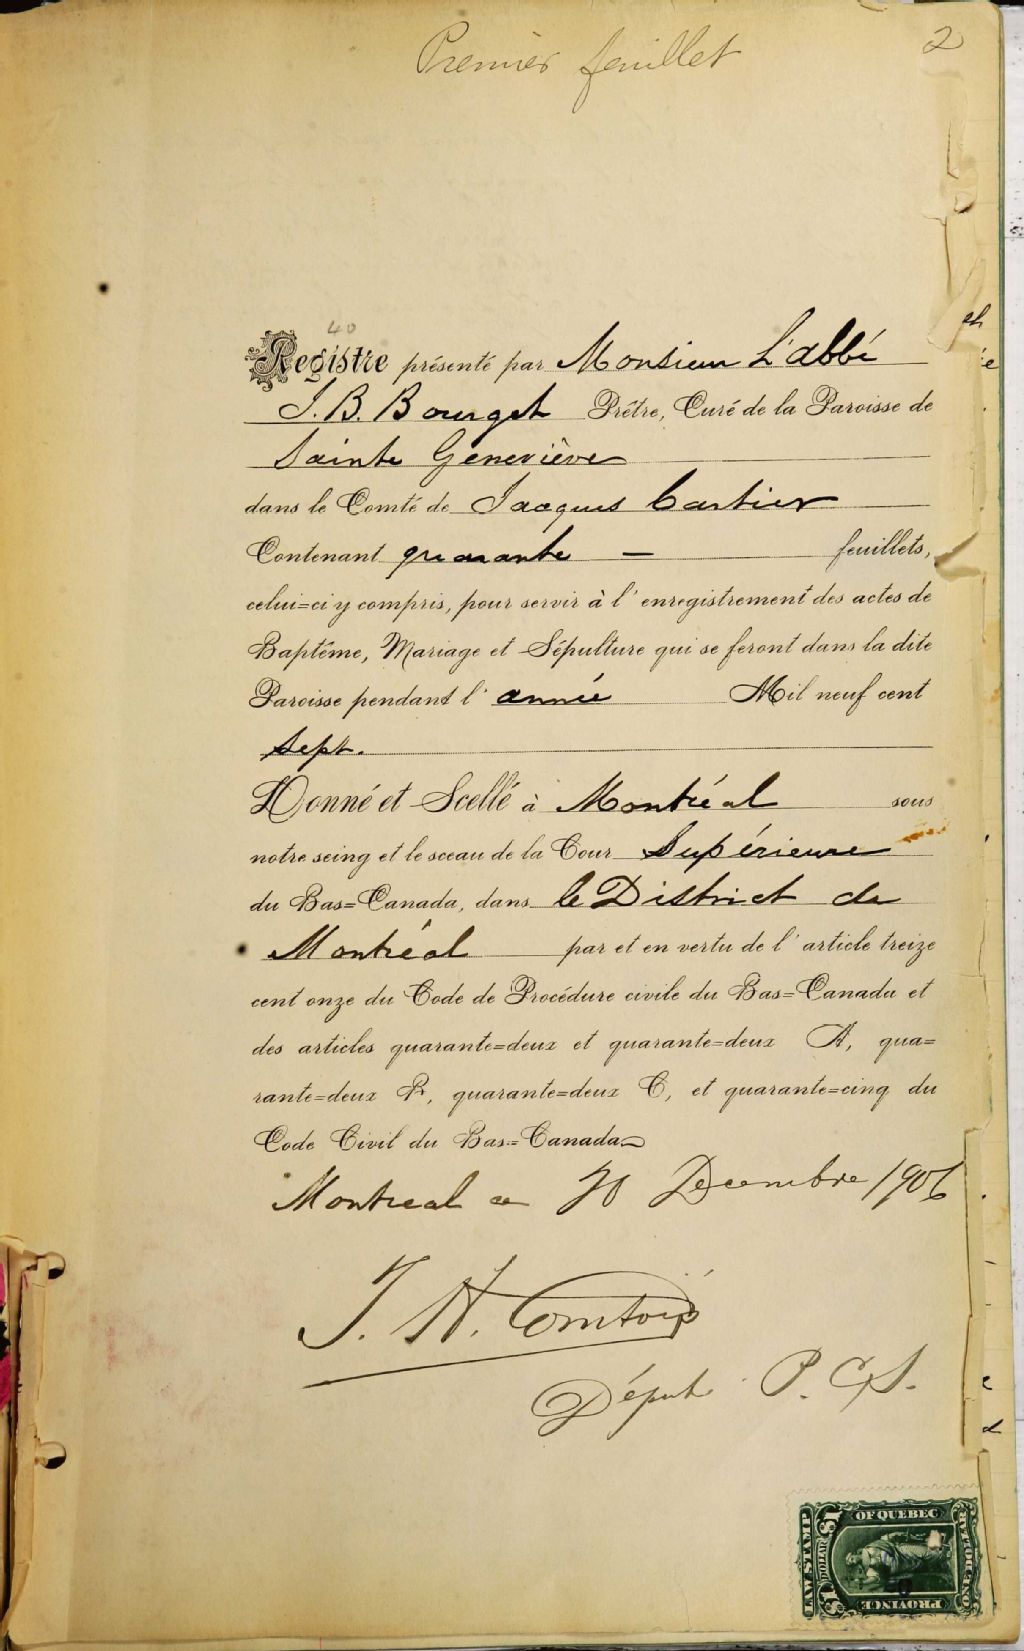 Premier feuillet
2
40
Registre présenté par Monsieur L'abbé
J. B. Bourget Prêtre, Curé de la Paroisse de
Sainte Geneviève
dans le Comté de Jacques Cartier
Contenant quarante — feuillets,
celui=ci y compris, pour servir à l'enregistrement des actes de
Baptême, Mariage et Sépulture qui se feront dans la dite
Paroisse pendant l'année Mil neuf cent
Sept.
Donné et Scellé à Montréal sous
notre seing et le sceau de la Cour Supérieure
du Bas=Canada, dans le District de
Montréal par et en vertu de l'article treize
cent onze du Code de Procédure civile du Bas=Canada et
des articles quarante=deux et quarante=deux A, qua=
rante=deux B, quarante=deux C, et quarante=cinq du
Code Civil du Bas=Canada
Montreal ce Decembre 1906
J. H. Comtois
Député P. C. S.
LAW STAMP
OF QUEBEC
PROVINCE
$1 DOLLAR $1
ONE DOLLAR